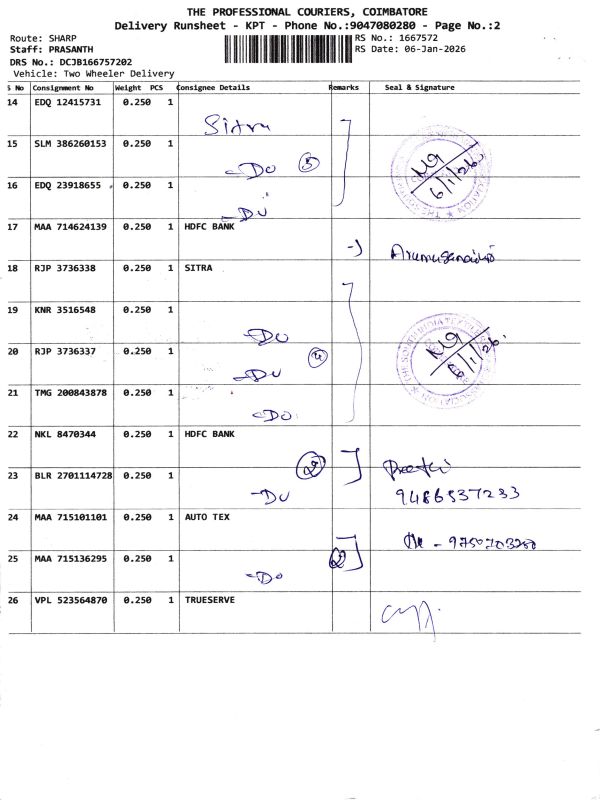 THE PROFESSIONAL COURIERS, COIMBATORE
Delivery Runsheet - KPT - Phone No.:9047080280 - Page No.:2
Route: SHARP
RS No.: 1667572
Staff: PRASANTH
RS Date: 06-Jan-2026
DRS No.: DCJB166757202
Vehicle: Two Wheeler Delivery
S No Consignment No Weight PCS Consignee Details Remarks Seal & Signature
14 EDQ 12415731 0.250 1 Sitra
15 SLM 386260153 0.250 1 -Do 3
16 EDQ 23918655 0.250 1 -Do
6/1/26.
17 MAA 714624139 0.250 1 HDFC BANK
18 RJP 3736338 0.250 1 SITRA
19 KNR 3516548 0.250 1 -Do
20 RJP 3736337 0.250 1 -Do 4
6/1/26.
21 TMG 200843878 0.250 1 -Do
22 NKL 8470344 0.250 1 HDFC BANK 2
23 BLR 2701114728 0.250 1 -Do
9486537233
24 MAA 715101101 0.250 1 AUTO TEX
25 MAA 715136295 0.250 1 -Do 2
26 VPL 523564870 0.250 1 TRUESERVE